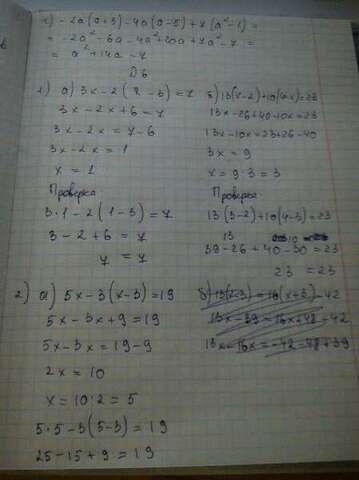 в) -2a(a+3)-4a(a-5)+7(a²-1)=
= -2a²-6a-4a²+20a+7a²-7=
= a²+14a-7
D6
1) а) 3x-2(x-3)=7
3x-2x+6=7
3x-2x=7-6
3x-2x=1
x=1
Проверка
3·1-2(1-3)=7
3-2+6=7
7=7
б) 13(x-2)+10(4-x)=23
13x-26+40-10x=23
13x-10x=23+26-40
3x=9
x=9:3=3
Проверка
13(3-2)+10(4-3)=23
39-26+40-30=23
23=23
2) а) 5x-3(x-3)=19
5x-3x+9=19
5x-3x=19-9
2x=10
x=10:2=5
5·5-3(5-3)=19
25-15+9=19
б) 13(x-3)=16(x+3)-42
13x-39=16x+48-42
13x-16x=-42+48+39